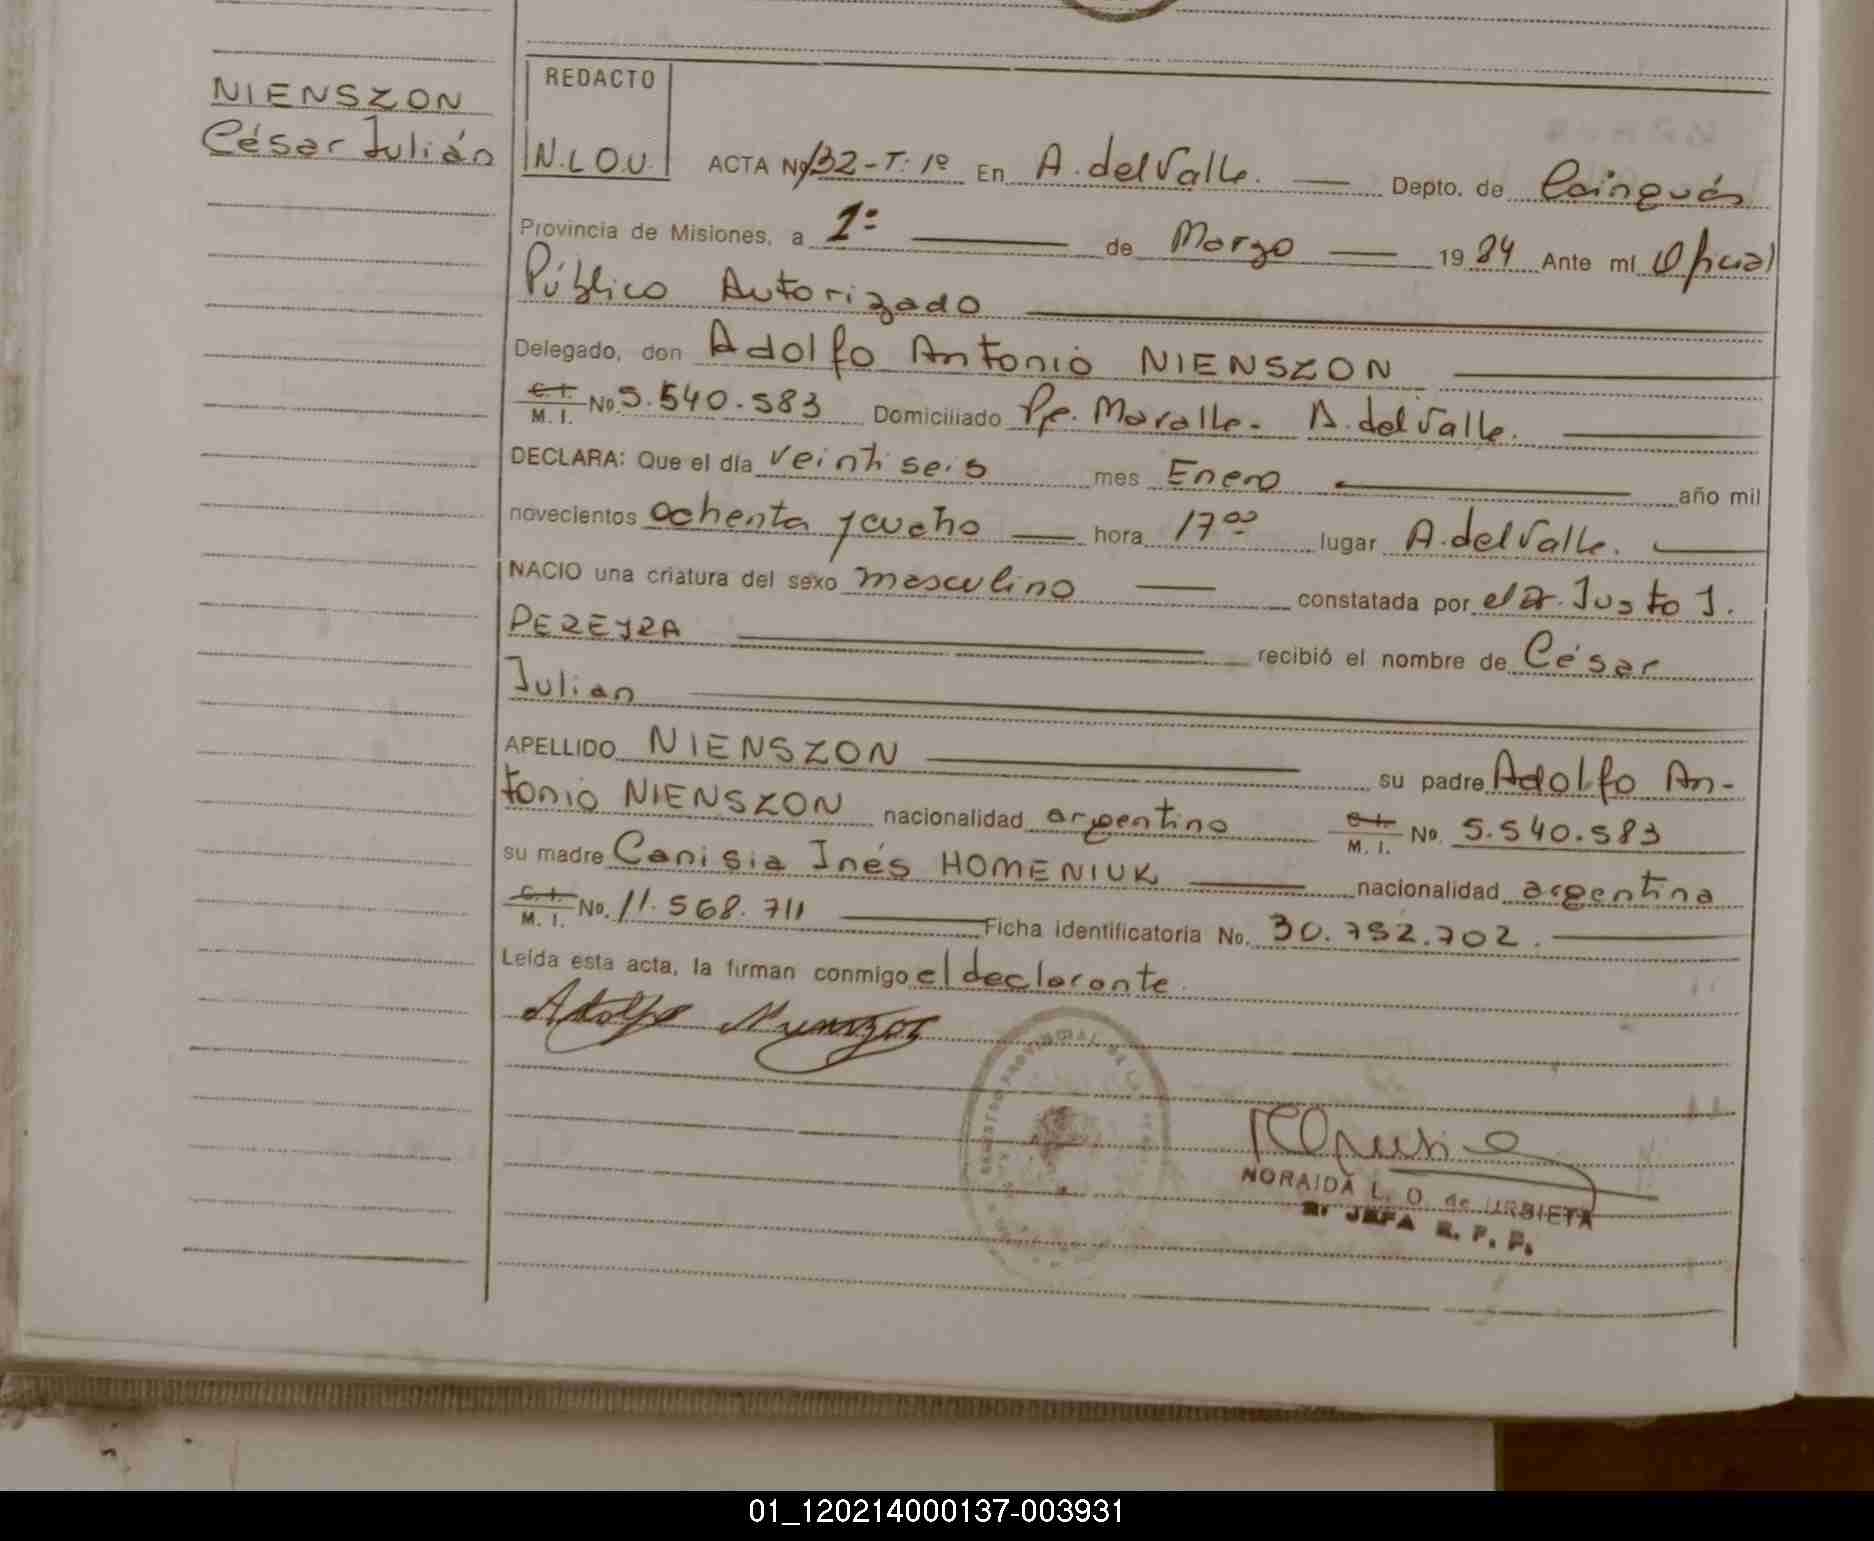 NIENSZON
César Julián
REDACTO
N.L.O.U.
ACTA Nº 132-T: 1º En A. del Valle. Depto. de Cainguás
Provincia de Misiones, a 1º de Marzo 1984 Ante mí Oficial
Público Autorizado
Delegado, don Adolfo Antonio NIENSZON
C. I.
M. I. Nº 5.540.583 Domiciliado Pje. Maralle. A. del Valle.
DECLARA: Que el día veintiseis mes Enero año mil
novecientos ochenta y cuatro hora 17 00 lugar A. del Valle.
NACIO una criatura del sexo masculino constatada por el Dr. Justo J.
PEREYRA recibió el nombre de César
Julian
APELLIDO NIENSZON su padre Adolfo An-
tonio NIENSZON nacionalidad argentino C. I. M. I. Nº. 5.540.583
su madre Canisia Inés HOMENIUK nacionalidad argentina
C. I.
M. I. Nº. 11.568.711 Ficha identificatoria No. 30.752.702.
Leída esta acta, la firman conmigo el declarante.
Adolfo Nienszon
NORAIDA L. O. de URBIETA
JEFA R. P. P.
01_120214000137-003931